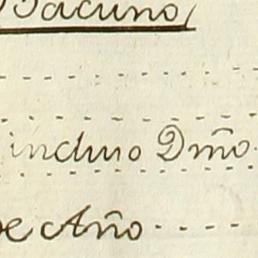 Bacuno
incluso Dmõ
de Año